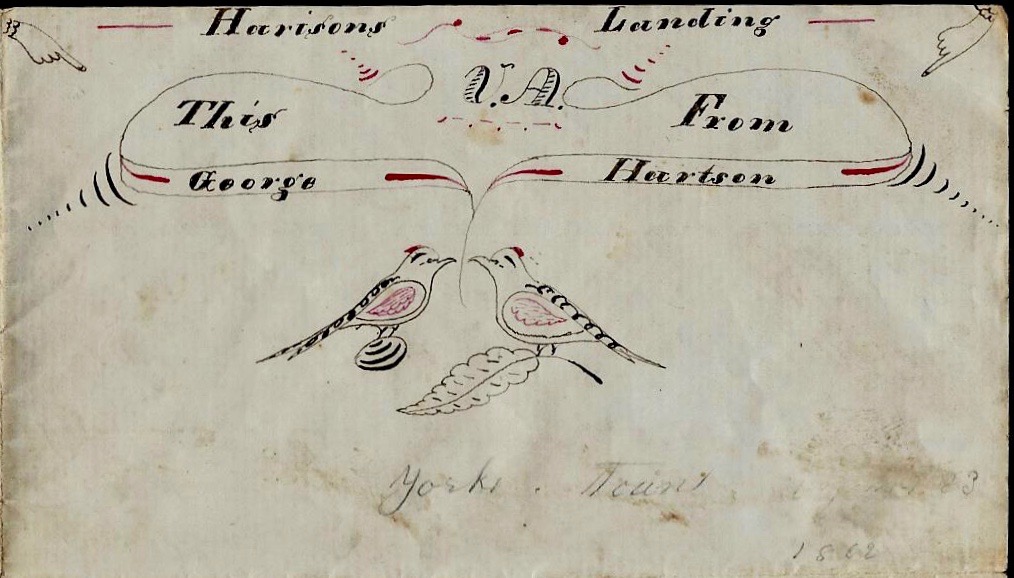 Harisons Landing
V.A.
This From
George Hartson
Yorks. Town
1862